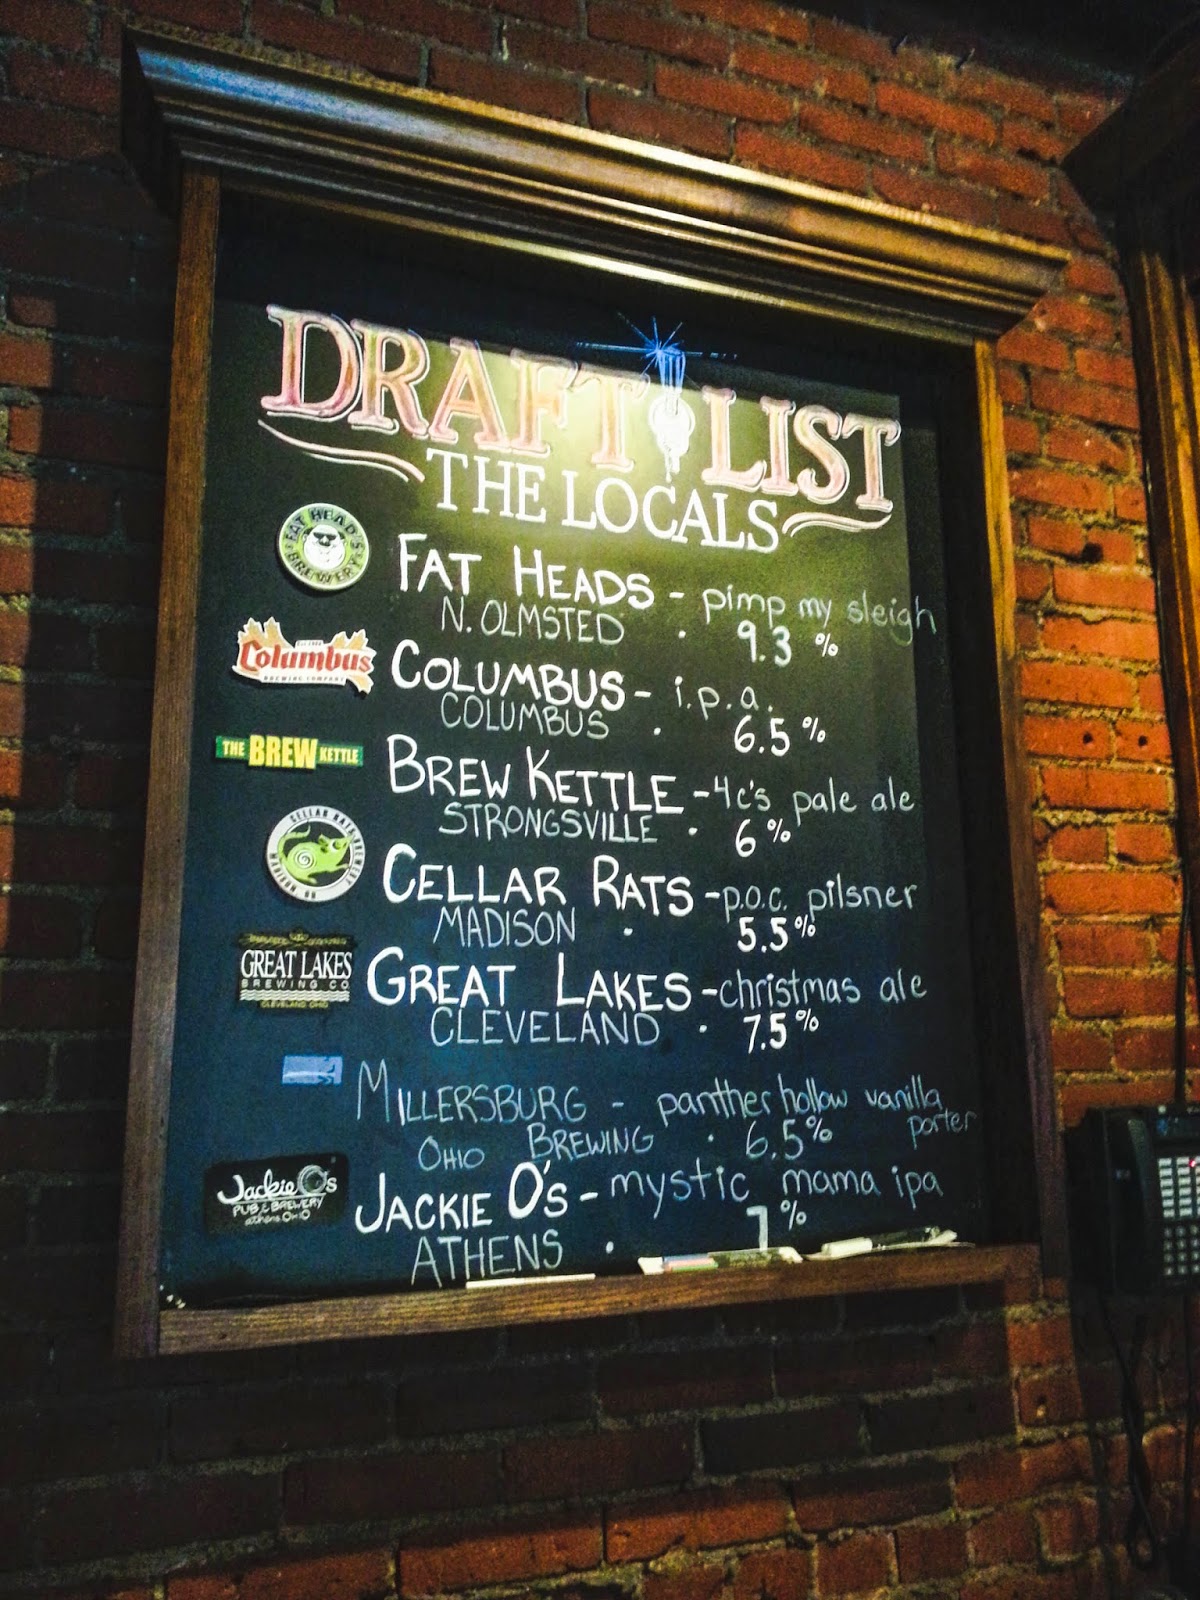 DRAFT LIST
THE LOCALS
FAT HEAD'S
BREWERY
FAT HEADS - pimp my sleigh
N. OLMSTED . 9.3 %
Columbus
BREWING COMPANY
COLUMBUS - i.p.a.
COLUMBUS . 6.5 %
THE BREW KETTLE
BREW KETTLE - 4 c's pale ale
STRONGSVILLE . 6 %
CELLAR RATS BREWERY
MADISON, OH
CELLAR RATS - p.o.c. pilsner
MADISON . 5.5 %
GREAT LAKES
BREWING CO
CLEVELAND, OHIO
GREAT LAKES - christmas ale
CLEVELAND . 7.5 %
MILLERSBURG - panther hollow vanilla
porter
OHIO BREWING . 6.5 %
Jackie O's
PUB & BREWERY
athens, OHIO
JACKIE O's - mystic mama ipa
ATHENS . 7 %